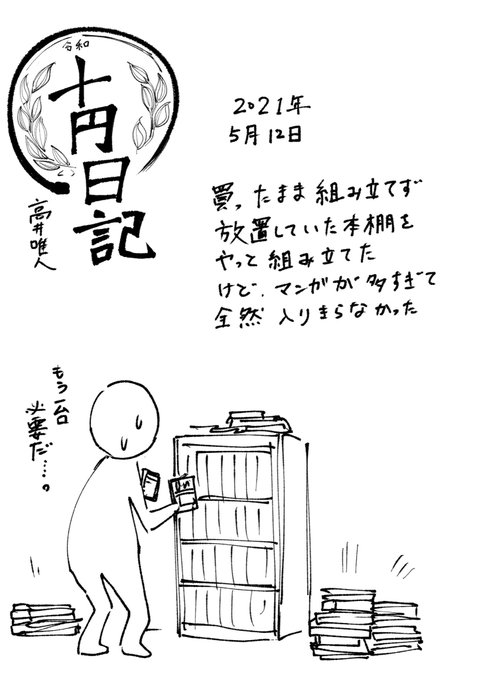 令和
十円日記
高井唯人
2021年
5月12日
買ったまま組み立てず
放置していた本棚を
やっと組み立てた
けど、マンガが多すぎて
全然入りきらなかった
もう一台
必要だ…。